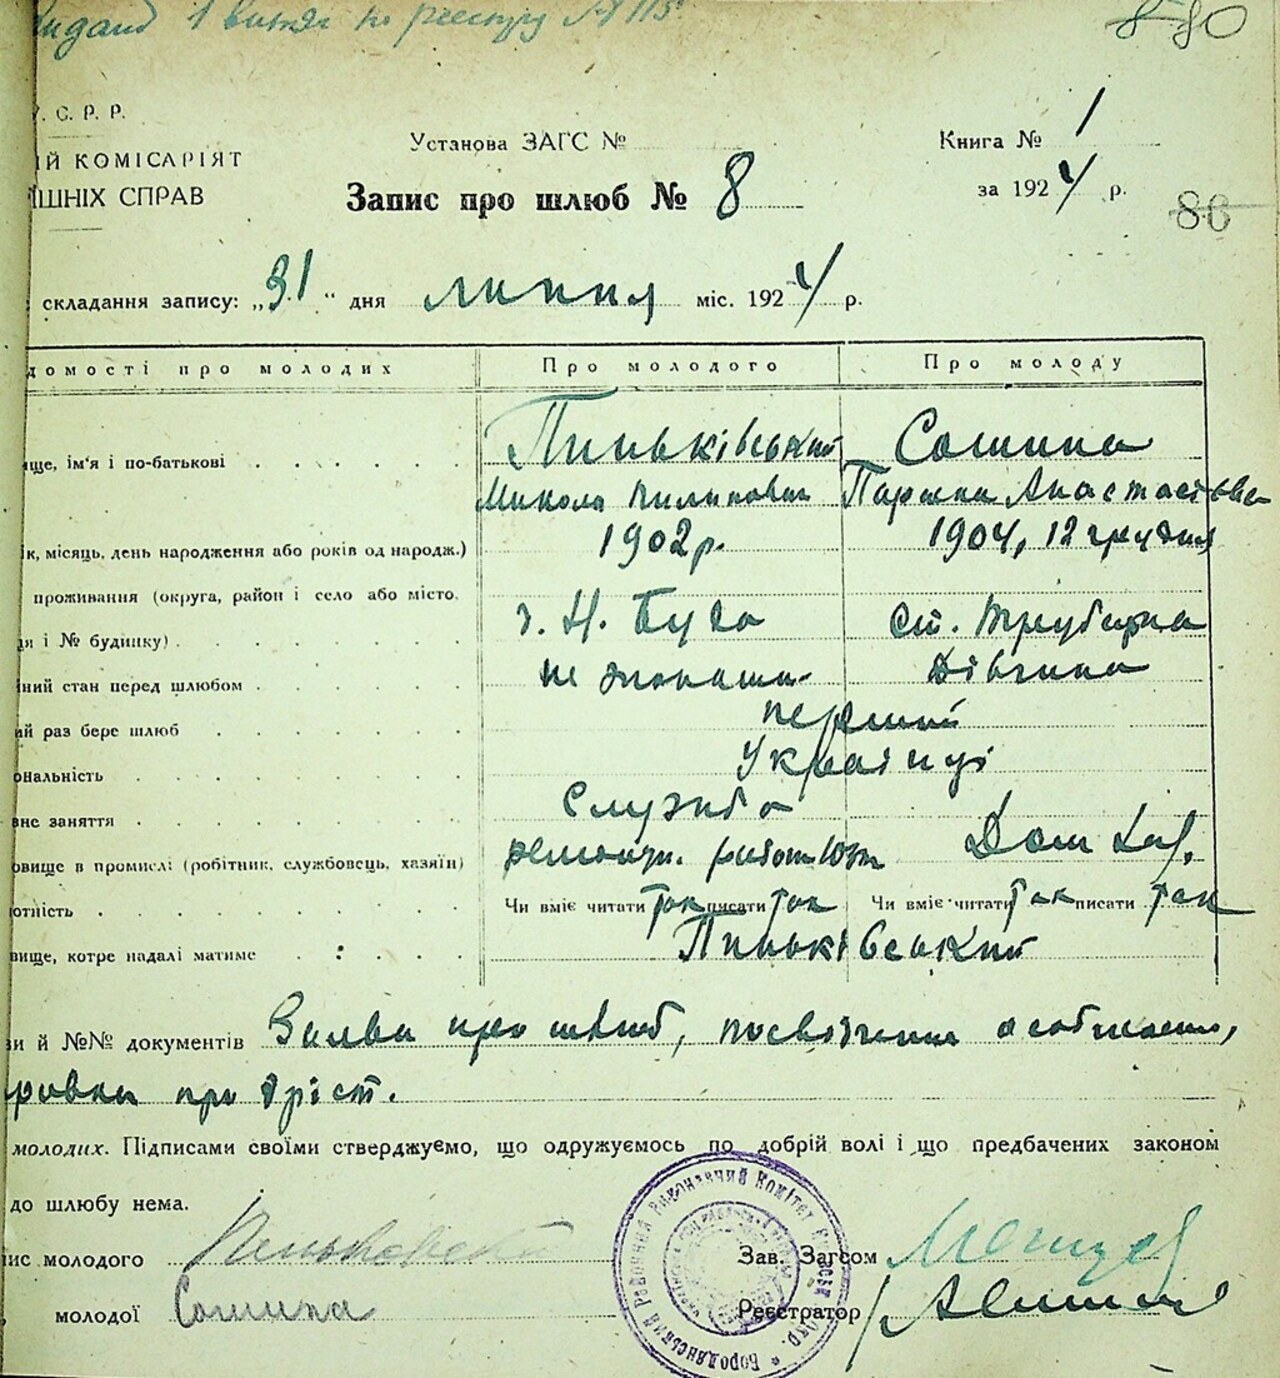 1 витяг по реєстру № 115
880
У. С. Р. Р.
ИЙ КОМІСАРІЯТ
ІШНІХ СПРАВ
Установа ЗАГС №
Книга № 1
Запис про шлюб № 8
за 1924 р.
86
складання запису: „31“ дня липня міс. 1924 р.
домості про молодих
Про молодого
Про молоду
ище, ім'я і по-батькові
Пиньківський
Микола Пилипович
Сошина
к, місяць, день народження або років од народж.)
1902 р.
1904, 12 грудня
проживання (округа, район і село або місто,
я і № будинку)
Н. Буда
ст.
ний стан перед шлюбом
Дівчина
ий раз бере шлюб
перший
ональність
Українці
вне заняття
Служба
овище в промислі (робітник, службовець, хазяїн)
Дом
отність
Чи вміє читати так писати так
Чи вміє читати так писати так
вище, котре надалі матиме
Пиньківський
зи й №№ документів Заява про шлюб, посвідчення особистости,
про
молодих. Підписами своїми стверджуємо, що одружуємось по добрій волі і що предбачених законом
до шлюбу нема.
ис молодого
молодої Сошина
Зав. Загсом
Реєстратор
Бородянський Районний Виконавчий Комітет Київськ. Окр.